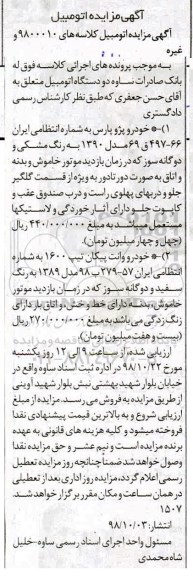 آگهی مزایده اتومبیل
آگهی مزایده اتومبیل کلاسه های ۹۸۰۰۰۱۰ و
غیره
به موجب پرونده های اجرائی کلاسه فوق له
بانک صادرات ساوه دو دستگاه اتومبیل متعلق به
آقای حسن جعفری که طبق نظر کارشناس رسمی
دادگستری
۱)- خودرو پژو پارس به شماره انتظامی ایران
۶۶-۴۹۷ ق ۶۹ مدل ۱۳۹۰ به رنگ مشکی و
دوگانه سوز که در زمان بازدید موتور خاموش و بدنه
و اتاق به صورت دور تا دور به ویژه از قسمت گلگیر
جلو و دربهای پهلوی راست و درب صندوق عقب و
کاپوت جلو دارای آثار خوردگی و لاستیکها
مستعمل میباشد به مبلغ ۴۴۰/۰۰۰/۰۰۰ ریال
(چهل و چهار میلیون تومان)
۲)- خودرو وانت پیکان تیپ ۱۶۰۰ به شماره
انتظامی ایران ۵۷-۲۷۹ ب ۹۸ مدل ۱۳۸۹ به رنگ
سفید و دوگانه سوز که در زمان بازدید موتور
خاموش، بدنه دارای خط و خش، و اتاق بار دارای
زنگ زدگی می باشد به مبلغ ۲۷۰/۰۰۰/۰۰۰ ریال
(بیست و هفت میلیون تومان)
ارزیابی شده از ساعت ۹ الی ۱۲ روز یکشنبه
مورخ ۹۸/۱۰/۲۲ در اداره ثبت اسناد ساوه واقع در
خیابان بلوار شهید بهشتی نبش بلوار شهید آوینی
از طریق مزایده به فروش می رسد. مزایده از مبلغ
ارزیابی شروع و به بالاترین قیمت پیشنهادی نقدا
فروخته میشود و کلیه هزینه های قانونی به عهده
برنده مزایده است و نیم عشر و حق مزایده نقدا
وصول خواهد شد ضمنا چنانچه روز مزایده تعطیل
رسمی اعلام گردد، مزایده روز اداری بعد از تعطیلی
در همان ساعت و مکان مقرر برگزار خواهد شد.
۱۵۰۷
انتشار: ۹۸/۱۰/۰۳
مسئول واحد اجرای اسناد رسمی ساوه-خلیل
شاه محمدی